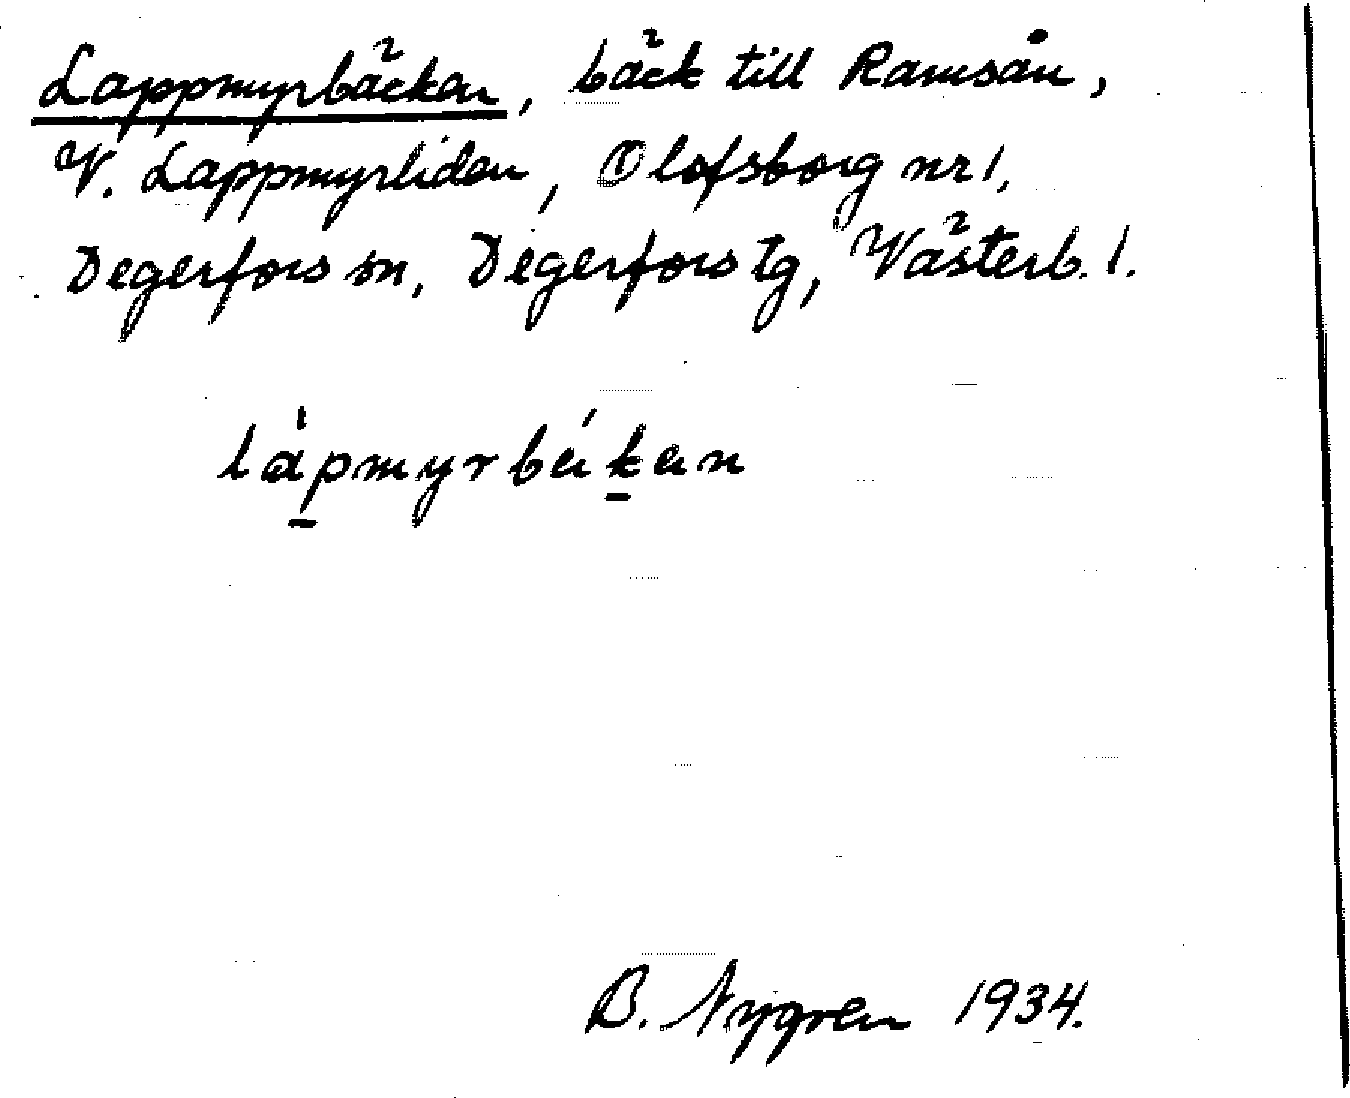 Lappmyrbäcken, bäck till Ramsån,
V. Lappmyrliden, Olofsborg nr 1,
Degerfors sn, Degerfors tg, Västerb. l.
lápmyrbékan
B. Nygren 1934.